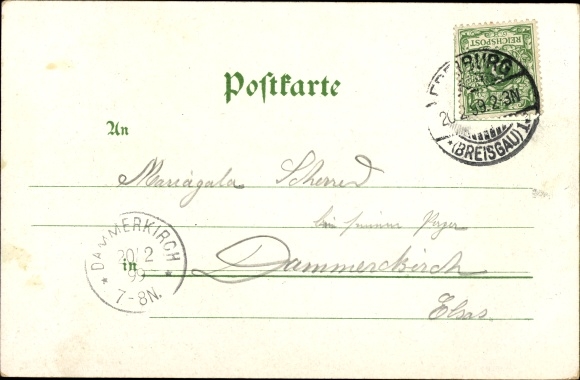 REICHSPOST
FREIBURG
20.2.99.2-3N
* (BREISGAU) 1.
Postkarte
An
Mariagala Scherred
bei
in Dammerkirch
Elsas.
* DAMMERKIRCH *
20/2
99
7-8N.